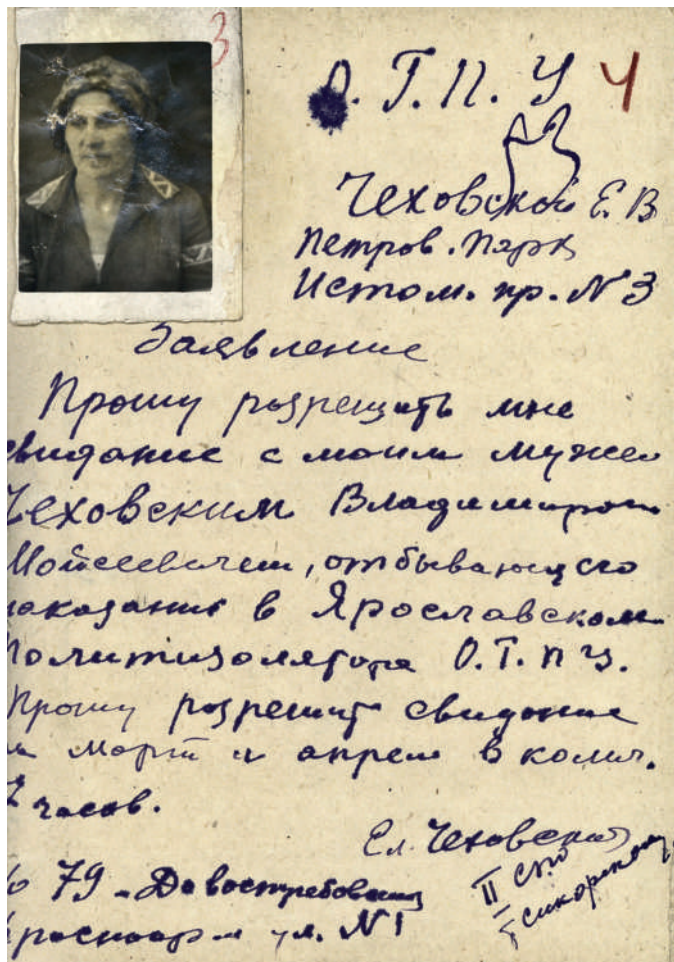 3
О. Г. П. У 4
Чеховской Е. В
Петров. Парк
Истом. пр. N 3
Заявление
Прошу разрешить мне
свидание с моим мужем
Чеховским Владимиром
Мойсеевичем, отбывающего
наказание в Ярославском
Политизолятора О. Г. П У.
Прошу разрешит свидание
за март и апрель в колич.
часов.
Ел. Чеховская
II СПО
79 - До востребования
ул. N 1